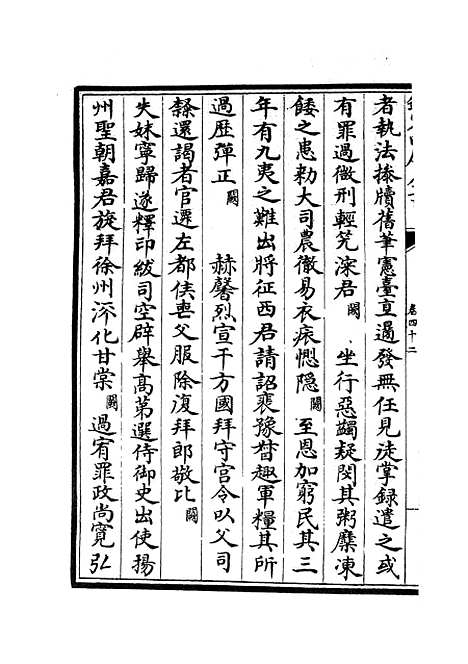 者執法捧牘舊筆憲臺直過發無任見徒掌録遣之或
有罪過徴刑輕笐深君闕　坐行惡蠲疑閔其粥糜凍
餧之患勑大司農徹易衣痰愡隠闕　至恩加窮民其三
年有九夷之難出將征西君請詔裴豫督趣軍糧其所
過歴彈正闕　赫馨烈宣干方國拜守官令以父司
𨽻還謁者官遷左都侯喪父服除復拜郎敬比闕
失妹寧歸遂釋印紱司空辟舉高第選侍御史出使揚
州聖朝嘉君旋拜徐州濟化甘棠闕　過宥罪政尚寛弘
卷四十二